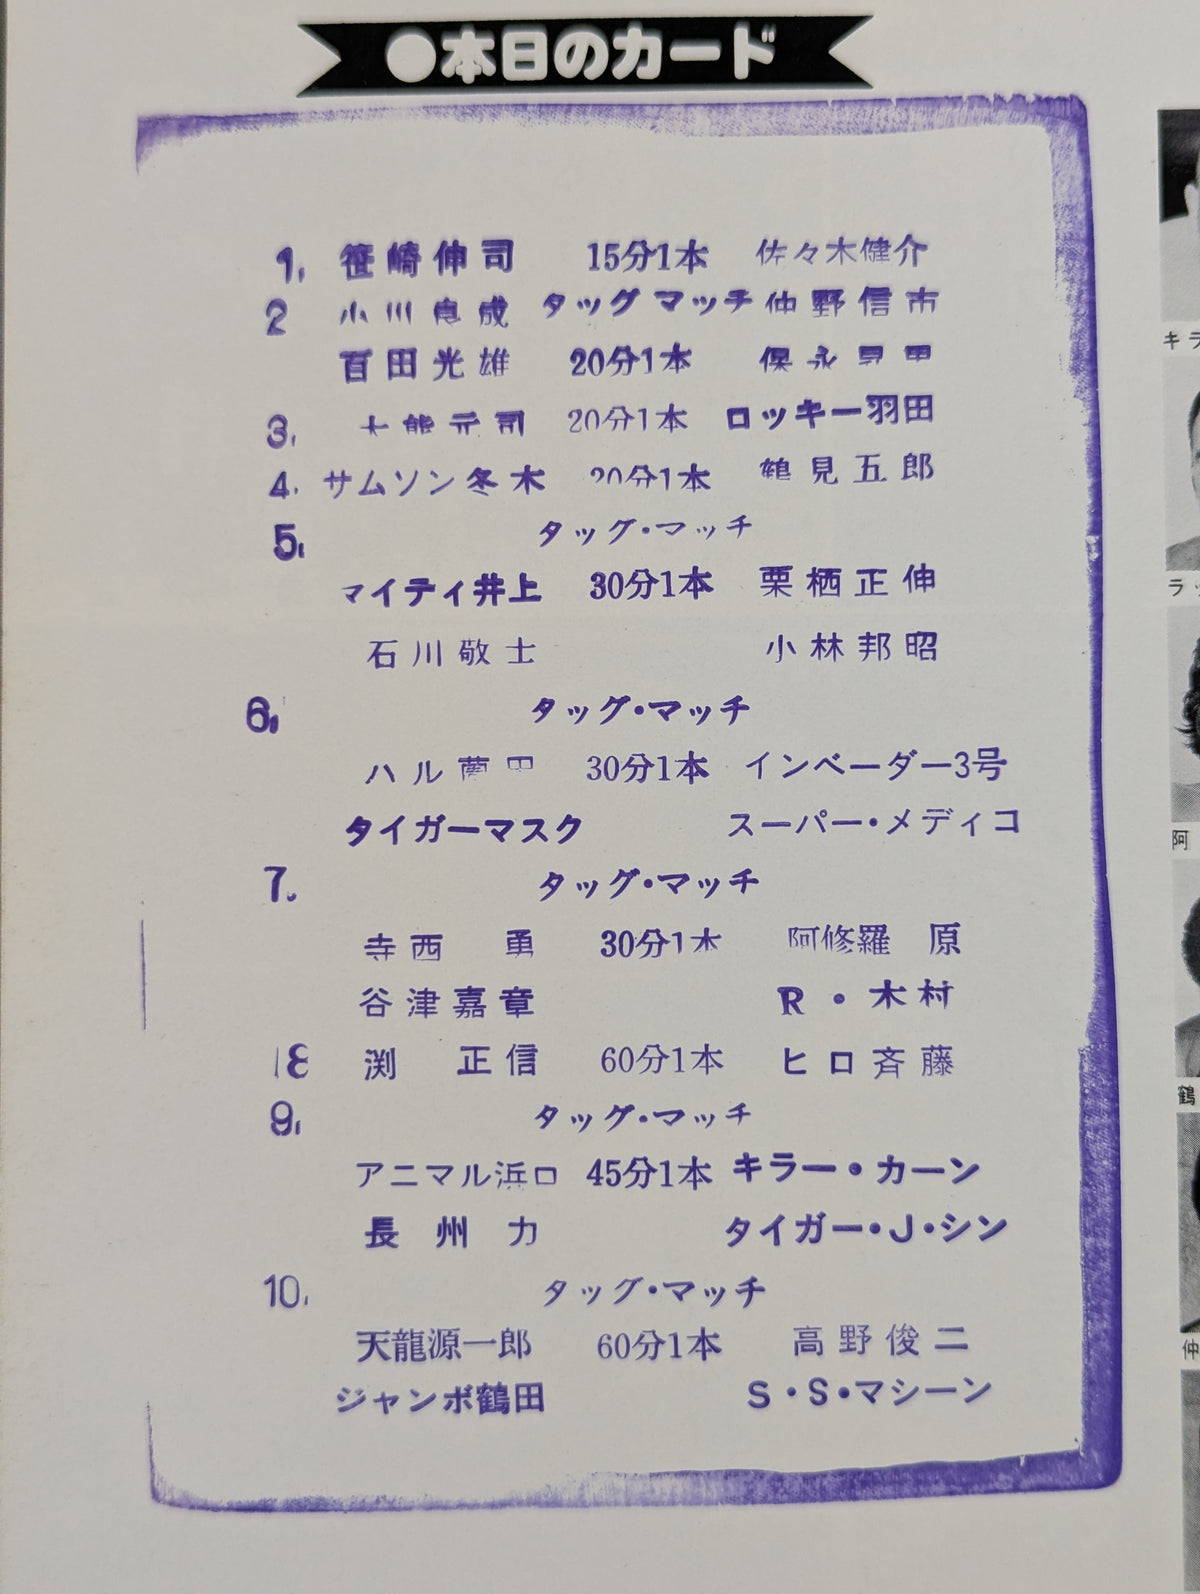 ●本日のカード
1. 笹崎伸司 15分1本 佐々木健介
2 小川良成 タッグマッチ 仲野信市
百田光雄 20分1本 保永昇男
3. 大熊元司 20分1本 ロッキー羽田
4. サムソン冬木 20分1本 鶴見五郎
5. タッグ・マッチ
マイティ井上 30分1本 栗栖正伸
石川敬士 小林邦昭
6. タッグ・マッチ
ハル薗田 30分1本 インベーダー3号
タイガーマスク スーパー・メディコ
7. タッグ・マッチ
寺西 勇 30分1本 阿修羅 原
谷津嘉章 R・木村
8 渕 正信 60分1本 ヒロ斉藤
9. タッグ・マッチ
アニマル浜口 45分1本 キラー・カーン
長州 力 タイガー・J・シン
10. タッグ・マッチ
天龍源一郎 60分1本 高野俊二
ジャンボ鶴田 S・S・マシーン
キラ
ラッ
阿
鶴
仲